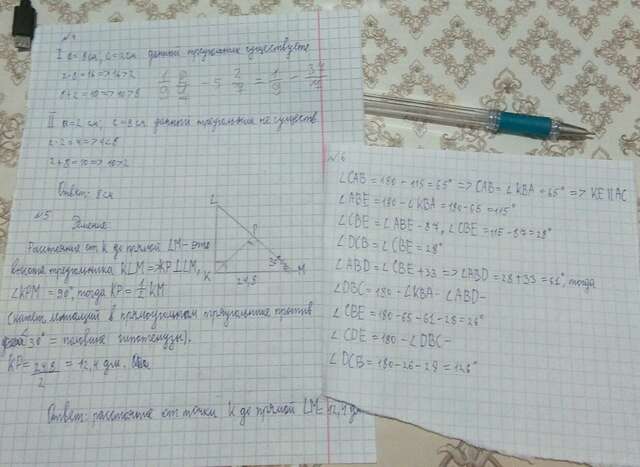 №4
I a=8см, c=2см данный треугольник существует
2·8=16=>16>2
8+2=10=>10>8
II a=2 см, c=8см данный треугольник не существ
2·2=4=>4<8
2+8=10=>10>2
Ответ: 8 см
№5
Решение:
Расстояние от K до прямой LM - это
высота треугольника KLM = KP⊥LM,
∠KPM = 90°, тогда KP = 1/2 KM
(катет, лежащий в прямоугольном треугольнике против
30° = половине гипотенузы).
KP = 24,8/2 = 12,4 дм.
Ответ: расстояние от точки K до прямой LM = 12,4 дм
L
P
K
30°
M
24,8
№6
∠CAB = 180 - 115 = 65° => CAB = ∠KBA = 65° => KE || AC
∠ABE = 180 - ∠KBA = 180 - 65 = 115°
∠CBE = ∠ABE - 87, ∠CBE = 115 - 87 = 28°
∠DCB = ∠CBE = 28°
∠ABD = ∠CBE + 33 => ∠ABD = 28 + 33 = 61°, тогда
∠DBC = 180 - ∠KBA - ∠ABD -
∠CBE = 180 - 65 - 61 - 28 = 26°
∠CDE = 180 - ∠DBC -
∠DCB = 180 - 26 - 28 = 126°